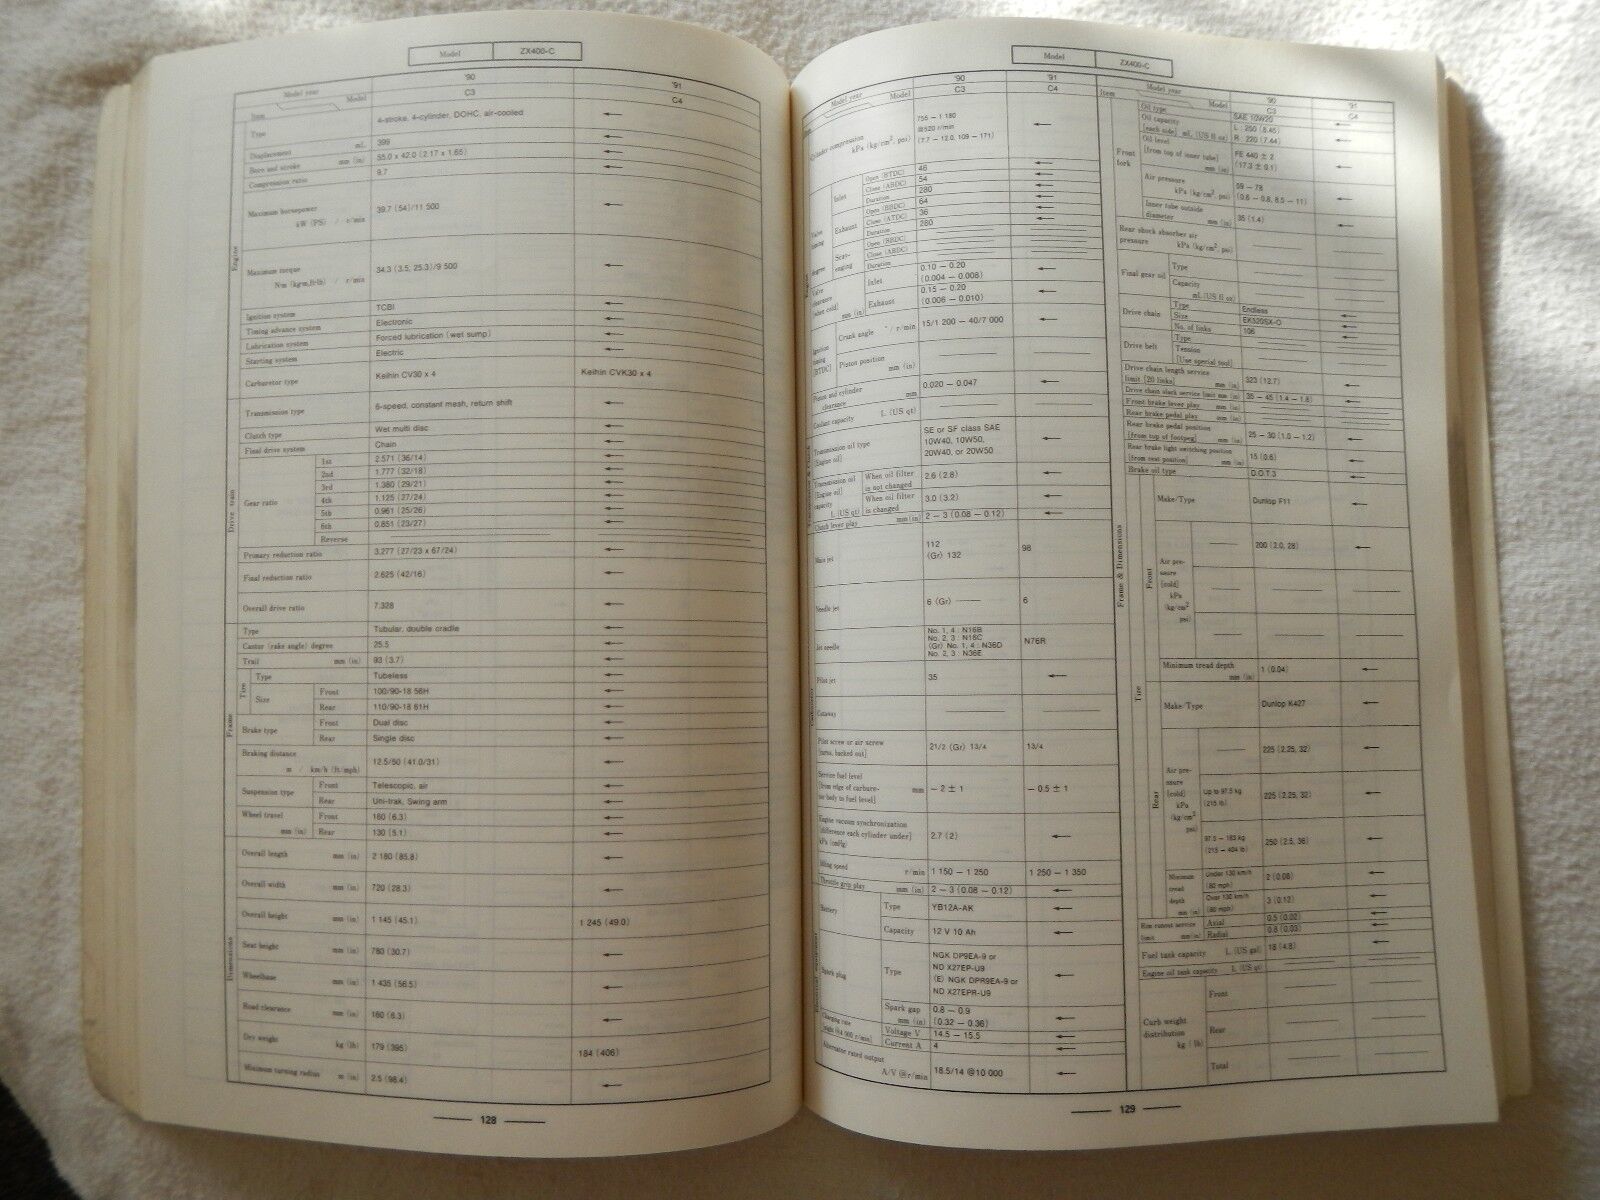 Model ZX400-C
Model year '90 '91
Model C3 C4
Item
Engine
Type 4-stroke, 4-cylinder, DOHC, air-cooled ←
Displacement mL 399 ←
Bore and stroke mm (in) 55.0 x 42.0 (2.17 x 1.65) ←
Compression ratio 9.7 ←
Maximum horsepower kW (PS) / r/min 39.7 (54)/11 500 ←
Maximum torque N·m (kg·m,ft·lb) / r/min 34.3 (3.5, 25.3)/9 500 ←
Ignition system TCBI ←
Timing advance system Electronic ←
Lubrication system Forced lubrication (wet sump) ←
Starting system Electric ←
Carburetor type Keihin CV30 x 4 Keihin CVK30 x 4
Drive train
Transmission type 6-speed, constant mesh, return shift ←
Clutch type Wet multi disc ←
Final drive system Chain ←
Gear ratio 1st 2.571 (36/14) ←
2nd 1.777 (32/18) ←
3rd 1.380 (29/21) ←
4th 1.125 (27/24) ←
5th 0.961 (25/26) ←
6th 0.851 (23/27) ←
Reverse
Primary reduction ratio 3.277 (27/23 x 67/24) ←
Final reduction ratio 2.625 (42/16) ←
Overall drive ratio 7.328 ←
Frame
Type Tubular, double cradle ←
Castor (rake angle) degree 25.5 ←
Trail mm (in) 93 (3.7) ←
Tire Type Tubeless ←
Size Front 100/90-18 56H ←
Rear 110/90-18 61H ←
Brake type Front Dual disc ←
Rear Single disc ←
Braking distance m / km/h (ft/mph) 12.5/50 (41.0/31) ←
Suspension type Front Telescopic, air ←
Rear Uni-trak, Swing arm ←
Wheel travel mm (in) Front 160 (6.3) ←
Rear 130 (5.1) ←
Dimensions
Overall length mm (in) 2 180 (85.8) ←
Overall width mm (in) 720 (28.3) ←
Overall height mm (in) 1 145 (45.1) 1 245 (49.0)
Seat height mm (in) 780 (30.7) ←
Wheelbase mm (in) 1 435 (56.5) ←
Road clearance mm (in) 160 (6.3) ←
Dry weight kg (lb) 179 (395) 184 (406)
Minimum turning radius m (in) 2.5 (98.4) ←
128
Model ZX400-C
Model year '90 '91
Model C3 C4
Cylinder compression kPa (kg/cm², psi) 755 – 1 180 ←
@520 r/min
(7.7 – 12.0, 109 – 171)
Valve timing degree
Inlet Open (BTDC) 46 ←
Close (ABDC) 54 ←
Duration 280 ←
Exhaust Open (BBDC) 64 ←
Close (ATDC) 36 ←
Duration 280 ←
Scavenging Open (BBDC)
Close (ABDC)
Duration
Valve clearance (when cold) mm (in)
Inlet 0.10 – 0.20 ←
(0.004 – 0.008)
Exhaust 0.15 – 0.20 ←
(0.006 – 0.010)
Ignition timing [BTDC]
Crank angle ° / r/min 15/1 200 – 40/7 000 ←
Piston position mm (in)
Piston and cylinder clearance mm 0.020 – 0.047 ←
Coolant capacity L (US qt)
Transmission oil type [Engine oil] SE or SF class SAE ←
10W40, 10W50,
20W40, or 20W50
Transmission oil [Engine oil] capacity L (US qt)
When oil filter is not changed 2.6 (2.8) ←
When oil filter is changed 3.0 (3.2) ←
Clutch lever play mm (in) 2 – 3 (0.08 – 0.12) ←
Main jet 112 98
(Gr) 132
Needle jet 6 (Gr) 6
Jet needle No. 1, 4 : N16B N76R
No. 2, 3 : N16C
(Gr) No. 1, 4 : N36D
No. 2, 3 : N36E
Pilot jet 35 ←
Cutaway
Pilot screw or air screw [turns, backed out] 21/2 (Gr) 13/4 13/4
Service fuel level [from edge of carburetor body to fuel level] mm – 2 ± 1 – 0.5 ± 1
Engine vacuum synchronization [difference each cylinder under] kPa (cmHg) 2.7 (2) ←
Idling speed r/min 1 150 – 1 250 1 250 – 1 350
Throttle grip play mm (in) 2 – 3 (0.08 – 0.12) ←
Electrical equipment
Battery Type YB12A-AK ←
Capacity 12 V 10 Ah ←
Spark plug Type NGK DP9EA-9 or ←
ND X27EP-U9
(E) NGK DPR9EA-9 or
ND X27EPR-U9
Spark gap mm (in) 0.8 – 0.9 ←
(0.32 – 0.36)
Charging rate Voltage V 14.5 – 15.5 ←
Current A 4 ←
Alternator rated output A/V @r/min 18.5/14 @10 000 ←
Item
Model year '90 '91
Model C3 C4
Frame & Dimensions
Front fork
Oil type SAE 10W20
Oil capacity [each side] mL (US fl oz) L : 250 (8.45) ←
R : 220 (7.44)
Oil level [from top of inner tube] mm (in) FE 440 ± 2 ←
(17.3 ± 0.1)
Air pressure kPa (kg/cm², psi) 59 – 78 ←
(0.6 – 0.8, 8.5 – 11)
Inner tube outside diameter mm (in) 35 (1.4) ←
Rear shock absorber air pressure kPa (kg/cm², psi)
Final gear oil Type
Capacity mL (US fl oz)
Drive chain Type Endless ←
Size EK520SX-O ←
No. of links 106 ←
Drive belt Type
Tension [Use special tool]
Drive chain length service limit [20 links] mm (in) 323 (12.7) ←
Drive chain slack service limit mm (in) 35 – 45 (1.4 – 1.8) ←
Front brake lever play mm (in)
Rear brake pedal play mm (in)
Rear brake pedal position [from top of footpeg] mm (in) 25 – 30 (1.0 – 1.2) ←
Rear brake light switching position [from rest position] mm (in) 15 (0.6) ←
Brake oil type D.O.T.3 ←
Tire
Front
Make/Type Dunlop F11 ←
Air pressure [cold] kPa (kg/cm² psi) 200 (2.0, 28) ←
Minimum tread depth mm (in) 1 (0.04) ←
Rear
Make/Type Dunlop K427 ←
Air pressure [cold] kPa (kg/cm² psi) 225 (2.25, 32) ←
Up to 97.5 kg (215 lb) 225 (2.25, 32) ←
97.5 – 183 kg (215 – 404 lb) 250 (2.5, 36) ←
Minimum tread depth mm (in) Under 130 km/h (80 mph) 2 (0.08) ←
Over 130 km/h (80 mph) 3 (0.12) ←
Rim runout service limit mm (in) Axial 0.5 (0.02) ←
Radial 0.8 (0.03) ←
Fuel tank capacity L (US gal) 18 (4.8) ←
Engine oil tank capacity L (US qt)
Curb weight distribution kg (lb)
Front
Rear
Total
129